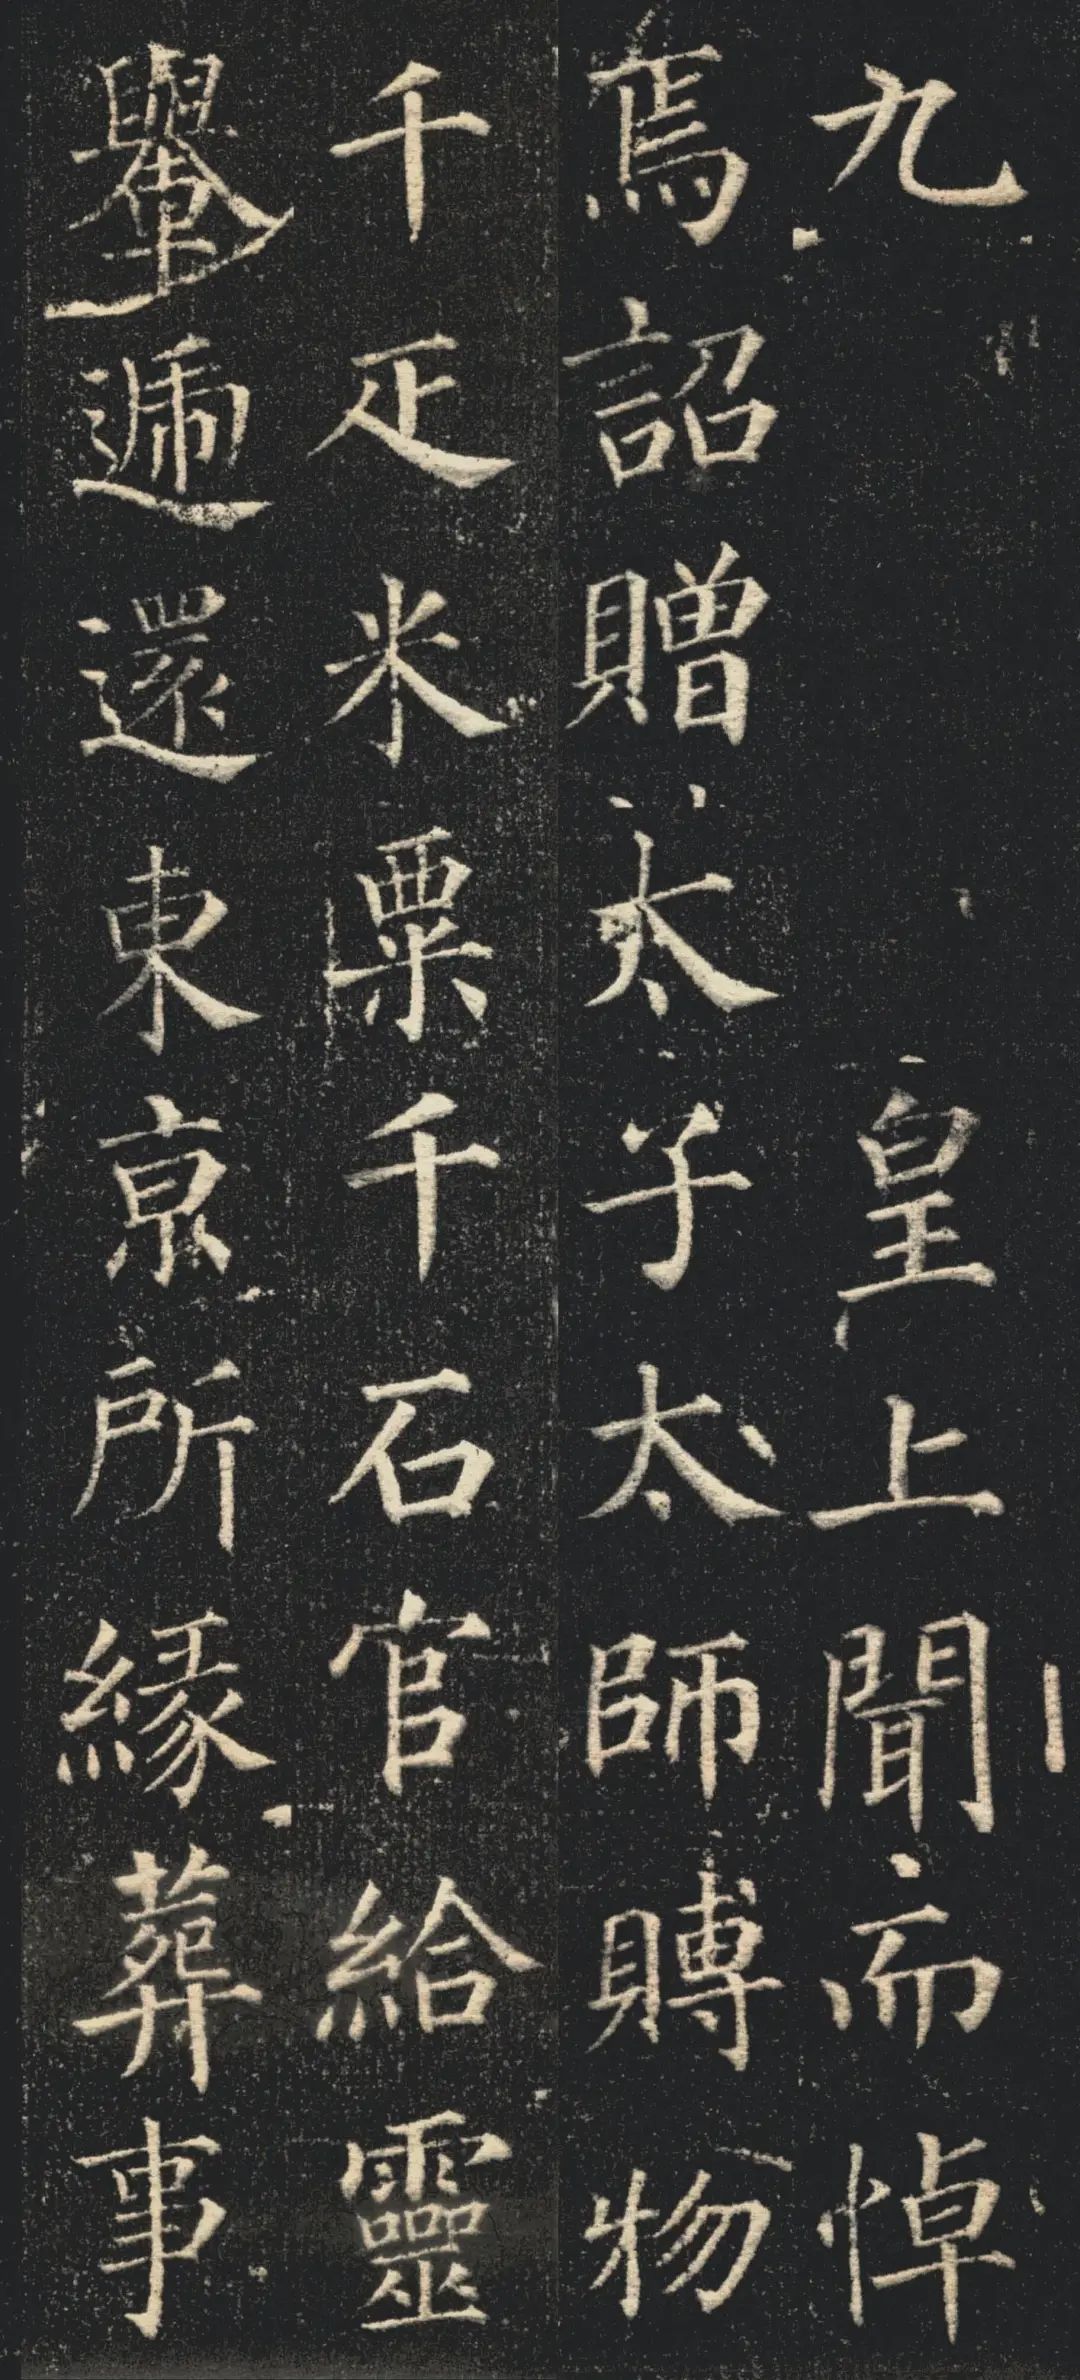 九皇上聞而悼
焉詔贈太子太師賻物
千疋米粟千石官給靈
轝遞還東亰所緣葬事